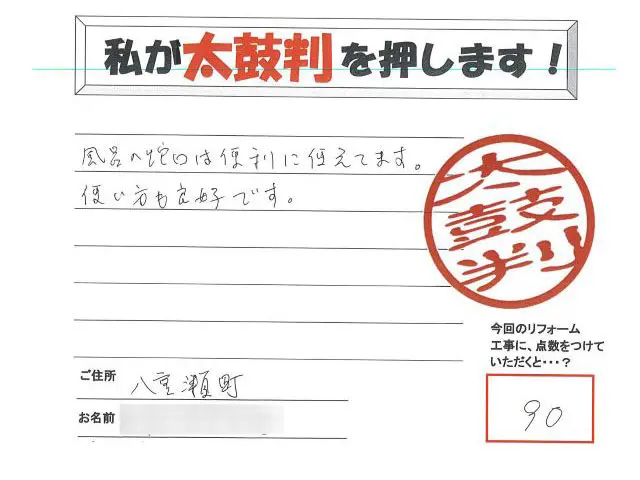 私が太鼓判を押します！
風呂の蛇口は便利に使えてます。
使い方も良好です。
太鼓判
今回のリフォーム
工事に、点数をつけて
いただくと・・・？
ご住所 八重瀬町
お名前
90